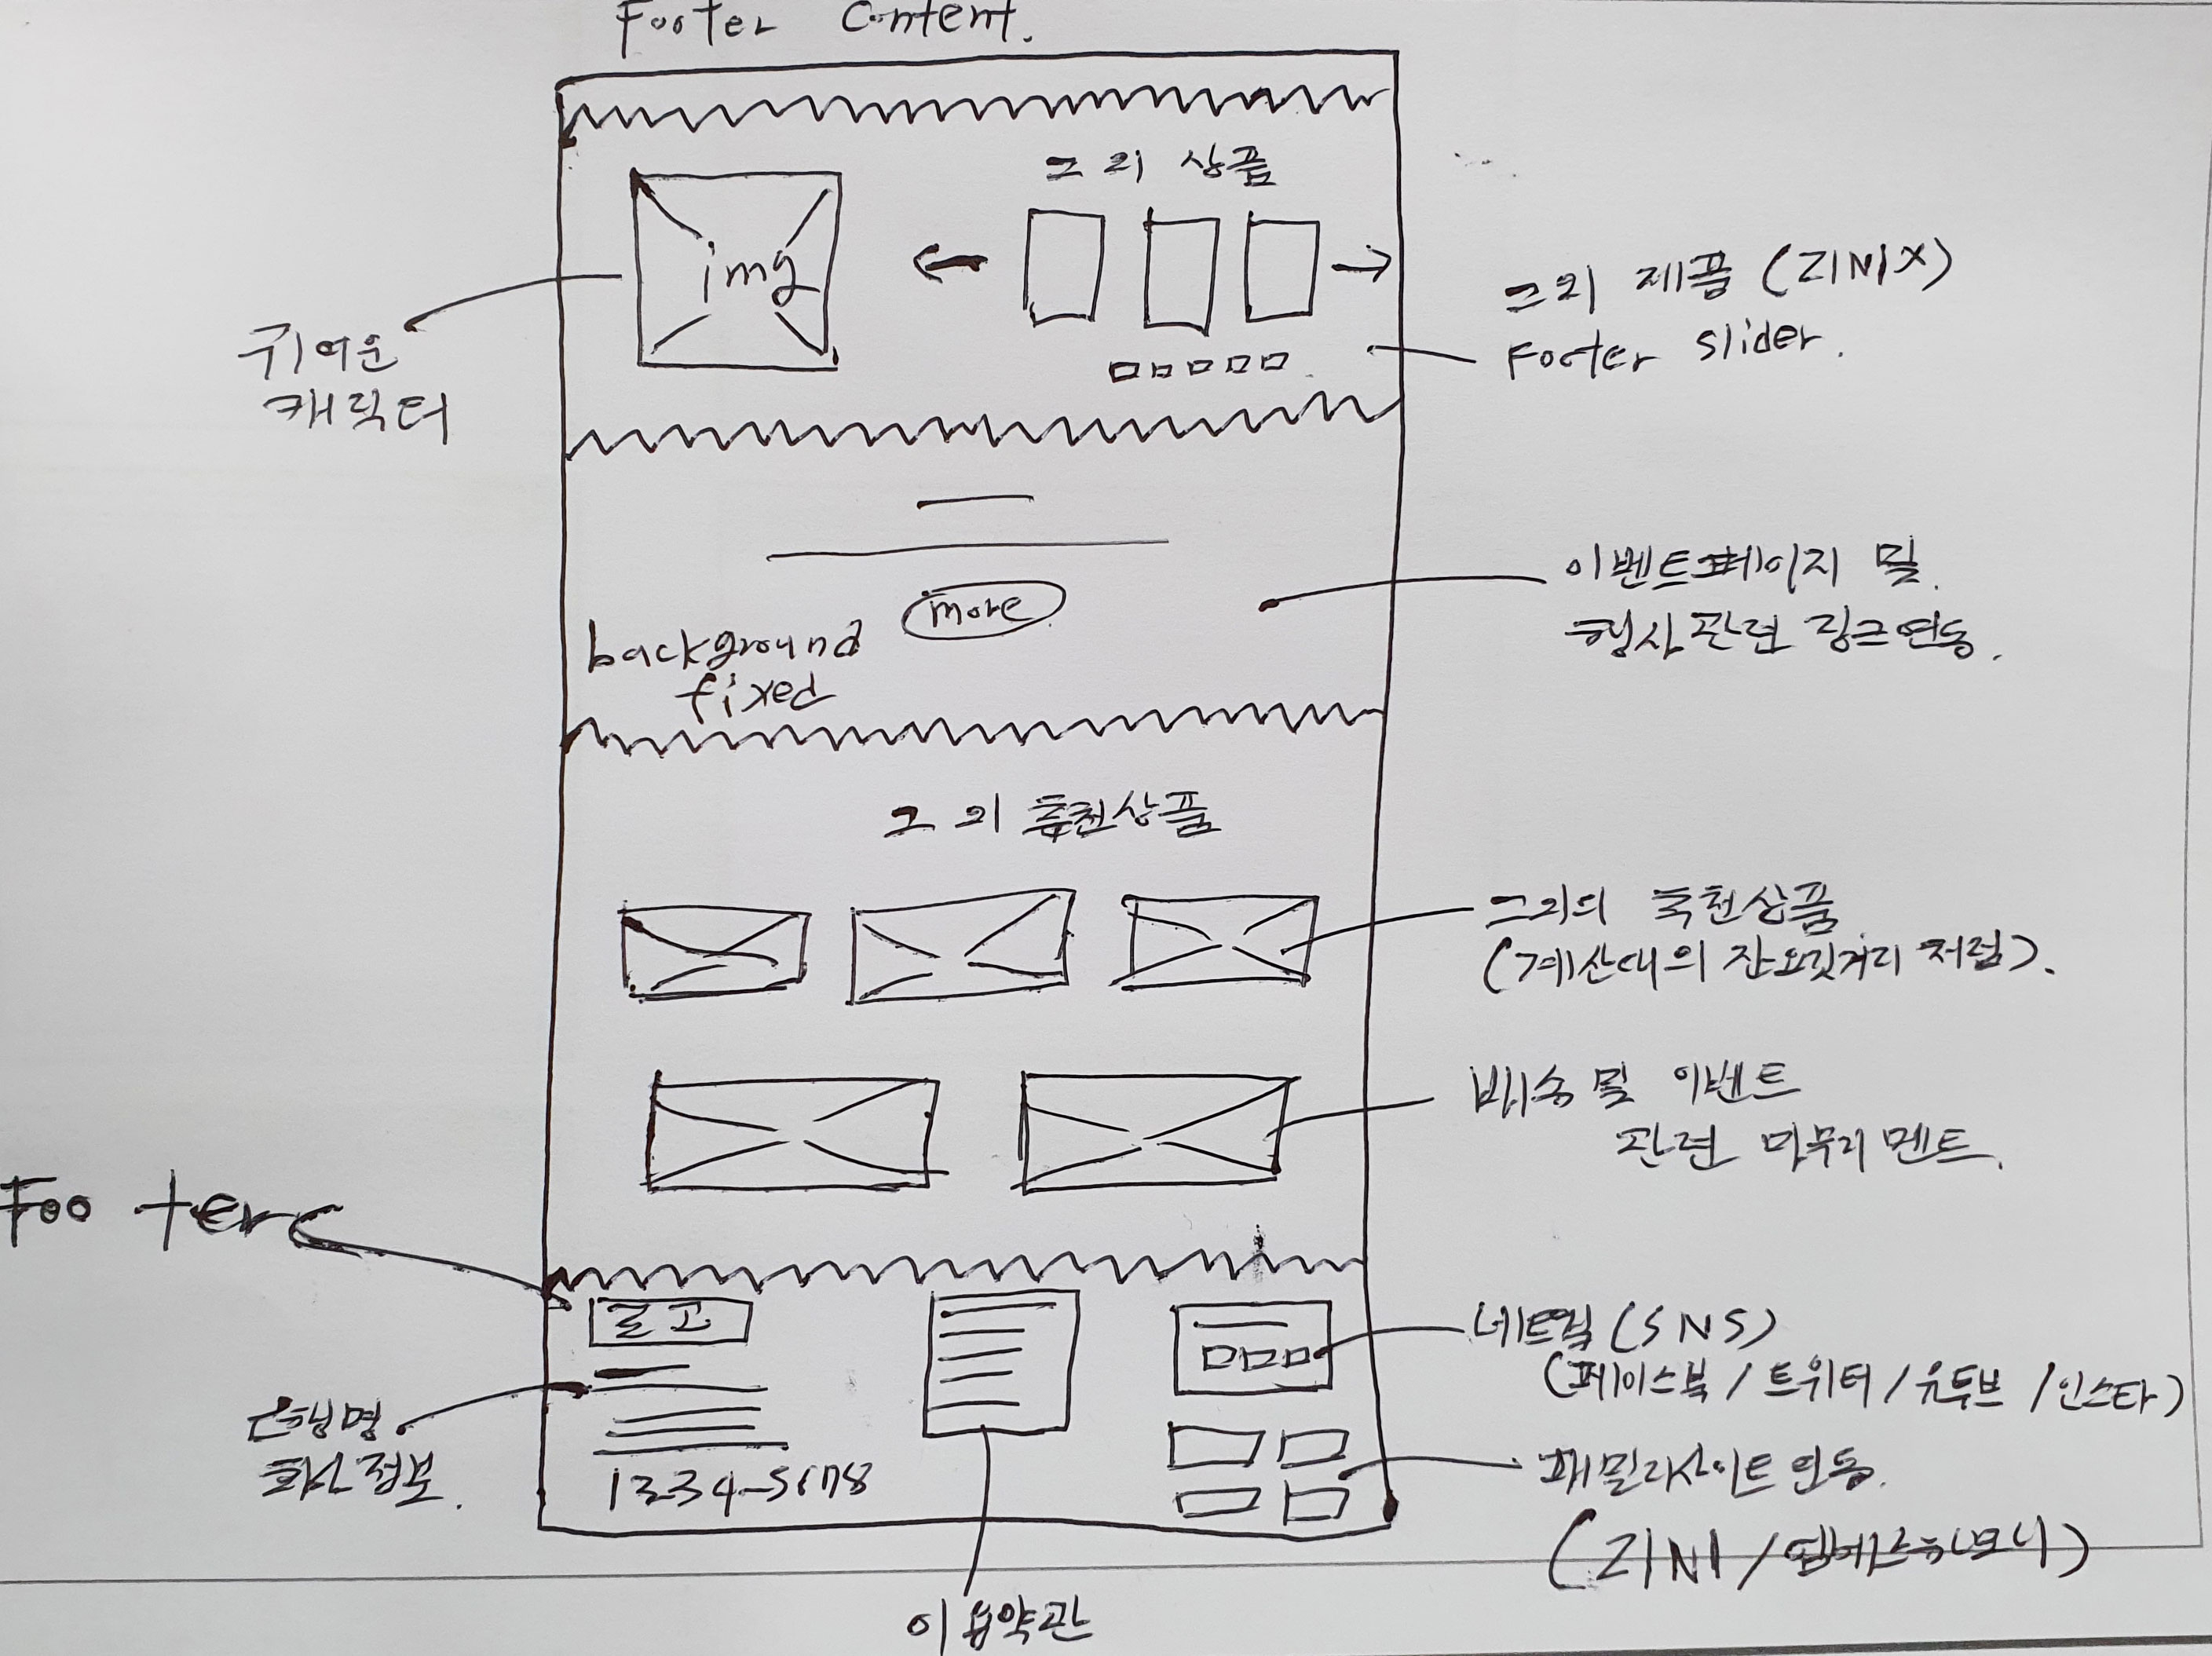 Footer Content.
그 외 상품
img
귀여운
캐릭터
그외 제품 (ZINIX)
Footer slider.
more
background
fixed
이벤트페이지 및
행사관련 링크연동.
그 외 추천상품
그외의 추천상품
(계산대의 잔요깃거리 처럼).
배송 및 이벤트
관련 마무리 멘트.
Footer
로고
은행명
회사정보.
1234-5678
이용약관
(SNS)
(페이스북 / 트위터 / 유투브 / 인스타)
패밀리사이트 연동.
(ZINI /